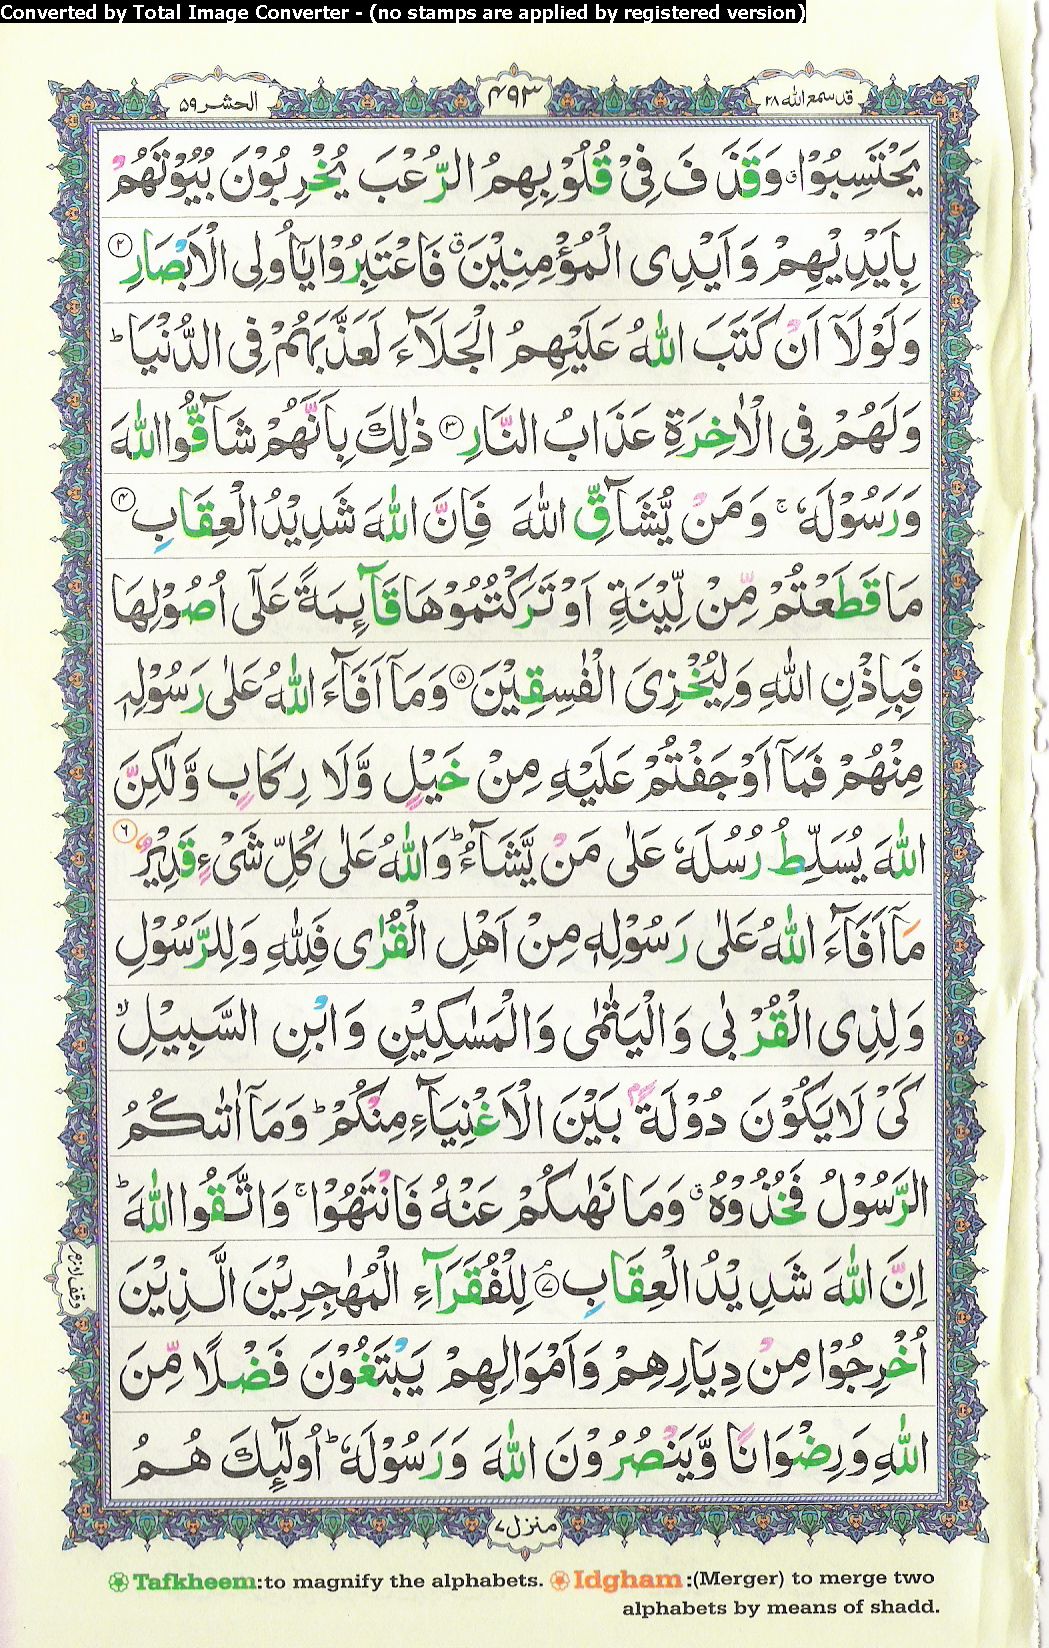 Converted by Total Image Converter - (no stamps are applied by registered version)
قد سمع الله ٢٨
۴۹۳
الحشر ۵۹
يَحْتَسِبُوْا ۗ وَقَذَفَ فِىْ قُلُوْبِهِمُ الرُّعْبَ يُخْرِبُوْنَ بُيُوْتَهُمْ
بِاَيْدِيْهِمْ وَاَيْدِى الْمُؤْمِنِيْنَ ۗ فَاعْتَبِرُوْا يٰۤاُولِى الْاَبْصَارِ ﴿۲﴾
وَلَوْلَاۤ اَنْ كَتَبَ اللّٰهُ عَلَيْهِمُ الْجَلَاۤءَ لَعَذَّبَهُمْ فِى الدُّنْيَا ؕ
وَلَهُمْ فِى الْاٰخِرَةِ عَذَابُ النَّارِ ﴿۳﴾ ذٰلِكَ بِاَنَّهُمْ شَاۤقُّوا اللّٰهَ
وَرَسُوْلَهٗ ۚ وَمَنْ يُّشَاۤقِّ اللّٰهَ فَاِنَّ اللّٰهَ شَدِيْدُ الْعِقَابِ ﴿۴﴾
مَا قَطَعْتُمْ مِّنْ لِّيْنَةٍ اَوْ تَرَكْتُمُوْهَا قَاۤئِمَةً عَلٰۤى اُصُوْلِهَا
فَبِاِذْنِ اللّٰهِ وَلِيُخْزِىَ الْفٰسِقِيْنَ ﴿۵﴾ وَمَاۤ اَفَاۤءَ اللّٰهُ عَلٰى رَسُوْلِهٖ
مِنْهُمْ فَمَاۤ اَوْجَفْتُمْ عَلَيْهِ مِنْ خَيْلٍ وَّلَا رِكَابٍ وَّلٰكِنَّ
اللّٰهَ يُسَلِّطُ رُسُلَهٗ عَلٰى مَنْ يَّشَاۤءُ ؕ وَاللّٰهُ عَلٰى كُلِّ شَىْءٍ قَدِيْرٌ ﴿۶﴾
مَاۤ اَفَاۤءَ اللّٰهُ عَلٰى رَسُوْلِهٖ مِنْ اَهْلِ الْقُرٰى فَلِلّٰهِ وَلِلرَّسُوْلِ
وَلِذِى الْقُرْبٰى وَالْيَتٰمٰى وَالْمَسٰكِيْنِ وَابْنِ السَّبِيْلِ ۙ
كَىْ لَا يَكُوْنَ دُوْلَةًۢ بَيْنَ الْاَغْنِيَاۤءِ مِنْكُمْ ؕ وَمَاۤ اٰتٰىكُمُ
الرَّسُوْلُ فَخُذُوْهُ ۗ وَمَا نَهٰىكُمْ عَنْهُ فَانْتَهُوْا ۚ وَاتَّقُوا اللّٰهَ ؕ
اِنَّ اللّٰهَ شَدِيْدُ الْعِقَابِ ﴿۷﴾ لِلْفُقَرَاۤءِ الْمُهٰجِرِيْنَ الَّذِيْنَ
اُخْرِجُوْا مِنْ دِيَارِهِمْ وَاَمْوَالِهِمْ يَبْتَغُوْنَ فَضْلًا مِّنَ
اللّٰهِ وَرِضْوَانًا وَّيَنْصُرُوْنَ اللّٰهَ وَرَسُوْلَهٗ ؕ اُولٰۤئِكَ هُمُ
وقف لازم
منزل ۷
Tafkheem:to magnify the alphabets. Idgham:(Merger) to merge two
alphabets by means of shadd.